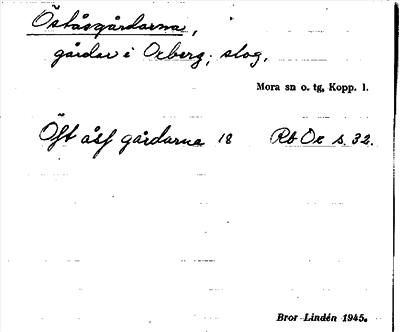 Öståsgårdarna,
gårdar i Oxberg; slog.
Mora sn o. tg, Kopp. l.
Öst åsf gårdarna 18 Rb Ox s. 32.
Bror Lindén 1945.